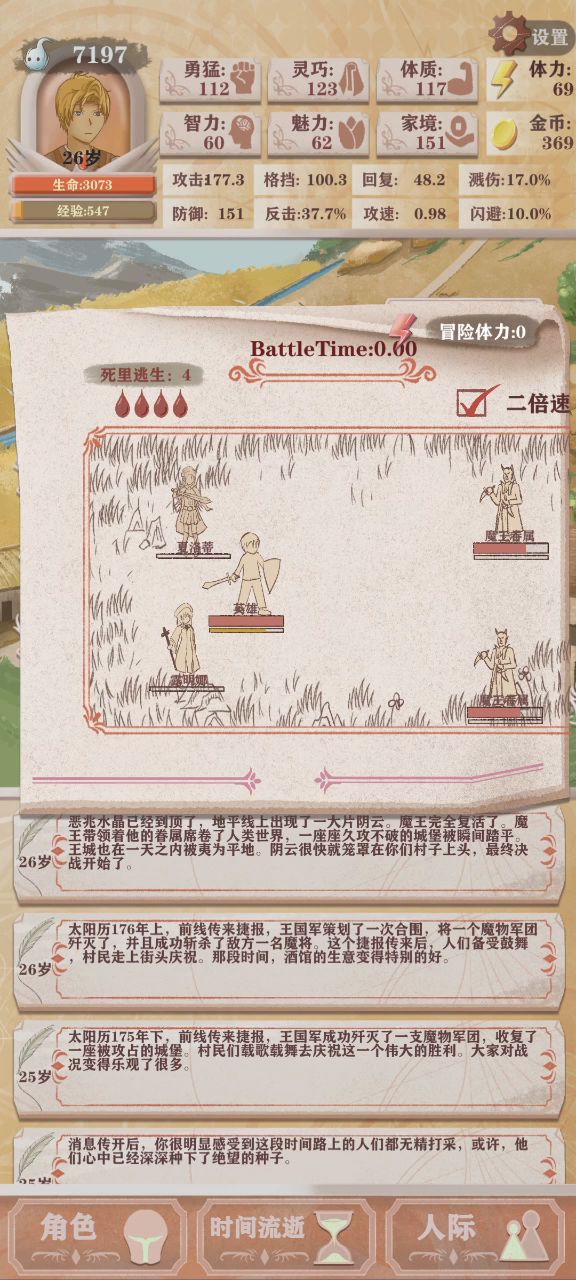 设置
7197
勇猛:
112
灵巧:
123
体质:
117
体力:
69
智力:
60
魅力:
62
家境:
151
金币:
369
26岁
生命:3073
经验:547
攻击:177.3
格挡: 100.3
回复: 48.2
溅伤:17.0%
防御: 151
反击:37.7%
攻速: 0.98
闪避:10.0%
冒险体力:0
BattleTime:0.00
死里逃生: 4
二倍速
夏洛蒂
魔王眷属
英雄
魔王眷属
恶兆水晶已经到顶了，地平线上出现了一大片阴云。魔王完全复活了。魔
王带领着他的眷属席卷了人类世界，一座座久攻不破的城堡被瞬间踏平。
王城也在一天之内被夷为平地。阴云很快就笼罩在你们村子上头，最终决
战开始了。
26岁
太阳历176年上，前线传来捷报，王国军策划了一次合围，将一个魔物军团
歼灭了，并且成功斩杀了敌方一名魔将。这个捷报传来后，人们备受鼓舞
，村民走上街头庆祝。那段时间，酒馆的生意变得特别的好。
26岁
太阳历175年下，前线传来捷报，王国军成功歼灭了一支魔物军团，收复了
一座被攻占的城堡。村民们载歌载舞去庆祝这一个伟大的胜利。大家对战
况变得乐观了很多。
25岁
消息传开后，你很明显感受到这段时间路上的人们都无精打采，或许，他
们心中已经深深种下了绝望的种子。
25岁
角色
时间流逝
人际